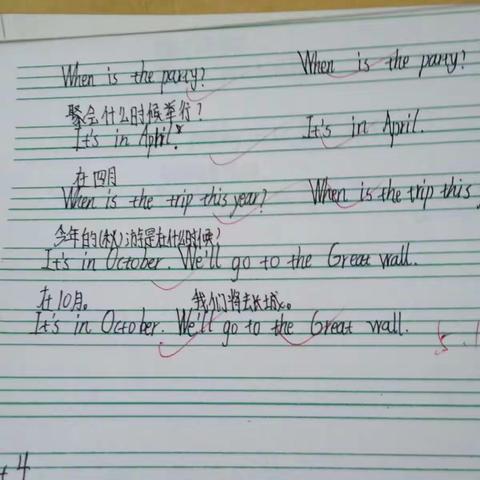 When is the party? When is the party?
聚会什么时候举行?
It's in April. It's in April.
在四月
When is the trip this year? When is the trip this
今年的(秋)游是在什么时候?
It's in October. We'll go to the Great wall.
在10月。 我们将去长城。
It's in October. We'll go to the Great wall.
4